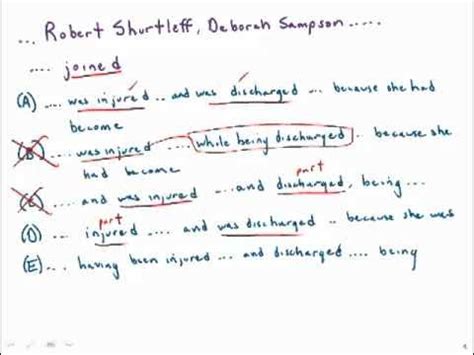 ... Robert Shurtleff, Deborah Sampson .....
.... joined
(A) .... was injured .. and was discharged ... because she had
become
(B) .... was injured ..... while being discharged .. because she
had become
(C) ... and was injured ... and discharged, being...
part
part
(D) ... injured .... and was discharged .. because she was
(E) ... having been injured ... and discharged .... being